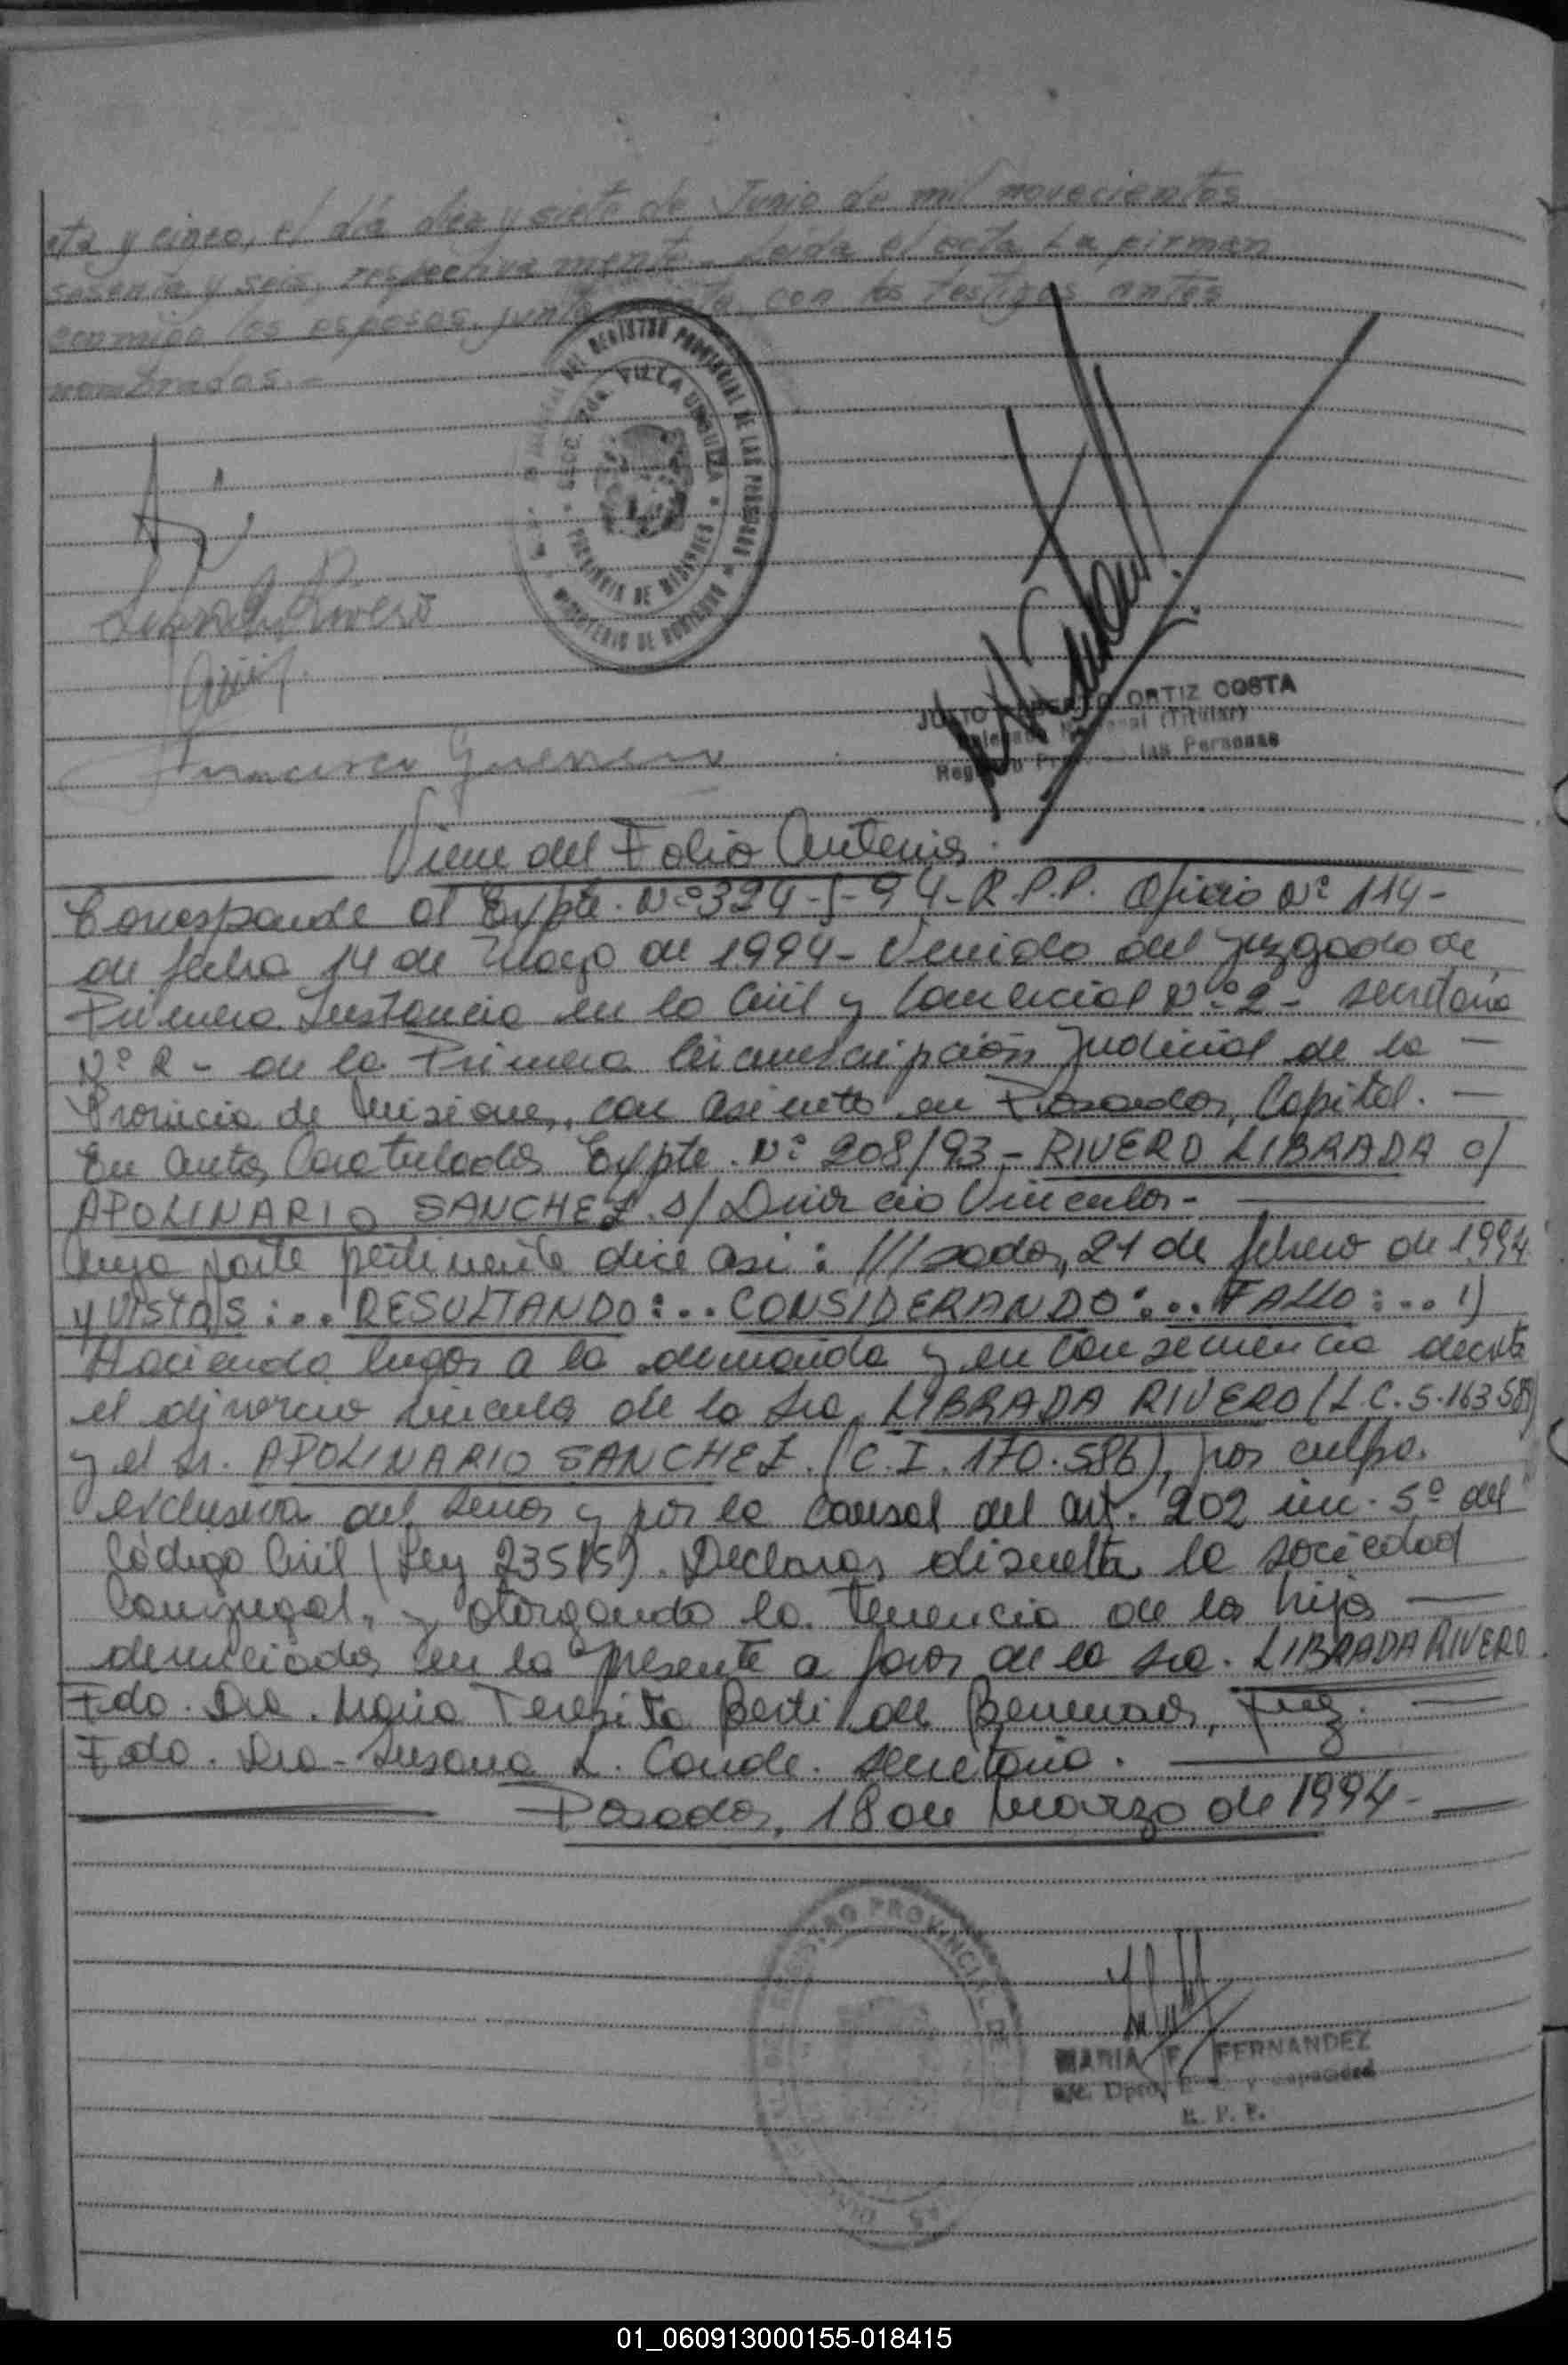 nta y cinco, el día diez y siete de Junio de mil novecientos
sesenta y seis, respectivamente.- Leída el acta La firman
conmigo los esposos, junta mente, con los testigos antes
nombrados.-
DEL REGISTRO PROVINCIAL DE LAS PERSONAS
SECC. 2da. VILLA URQUIZA
PROVINCIA DE MISIONES
MINISTERIO DE GOBIERNO
Librada Rivero
Francisco Guerrero
JULIO ALBERTO ORTIZ COSTA
Delegado (Titular)
Registro Prov. las Personas
Viene del Folio Anterior.
Corresponde al Expte. Nº 324-S-94-R.P.P. Oficio Nº 114-
de fecha 14 de Marzo de 1994- Venido del Juzgado de
Primera Instancia en lo Civil y Comercial Nº 2- secretaria
Nº 2- de la Primera Circunscripción Judicial de la —
Provincia de Misiones, con asiento en Posadas, Capital. —
En autos Caratulados Expte. Nº 208/93- RIVERO LIBRADA c/
APOLINARIO SANCHEZ. s/ Divorcio Vincular.-
Cuya parte pertinente dice así: ///sadas, 21 de febrero de 1994
Y VISTOS:.. RESULTANDO:.. CONSIDERANDO:.. FALLO:.. 1)
Haciendo lugar a la demanda y en consecuencia decreta
el divorcio vincular de la Sra. LIBRADA RIVERO (L.C. 5.163.589)
y el Sr. APOLINARIO SANCHEZ. (C.I. 170.586), por culpa
exclusiva del Señor y por la causal del art. 202 inc. 5º del
Código Civil (Ley 23515). Declarar disuelta la sociedad
Conyugal, y otorgando la tenencia de los hijos —
denunciados en la presente a favor de la Sra. LIBRADA RIVERO
Fdo. Dra. Maria Teresita Berti de Benmaor, Juez. —
Fdo. Dra- Susana L. Conde. Secretaria. —
Posadas, 18 de Marzo de 1994- —
REGISTRO PROVINCIAL DE
MARIA F. FERNANDEZ
a/c. Dpto. y capacidad
R. P. P.
01_060913000155-018415